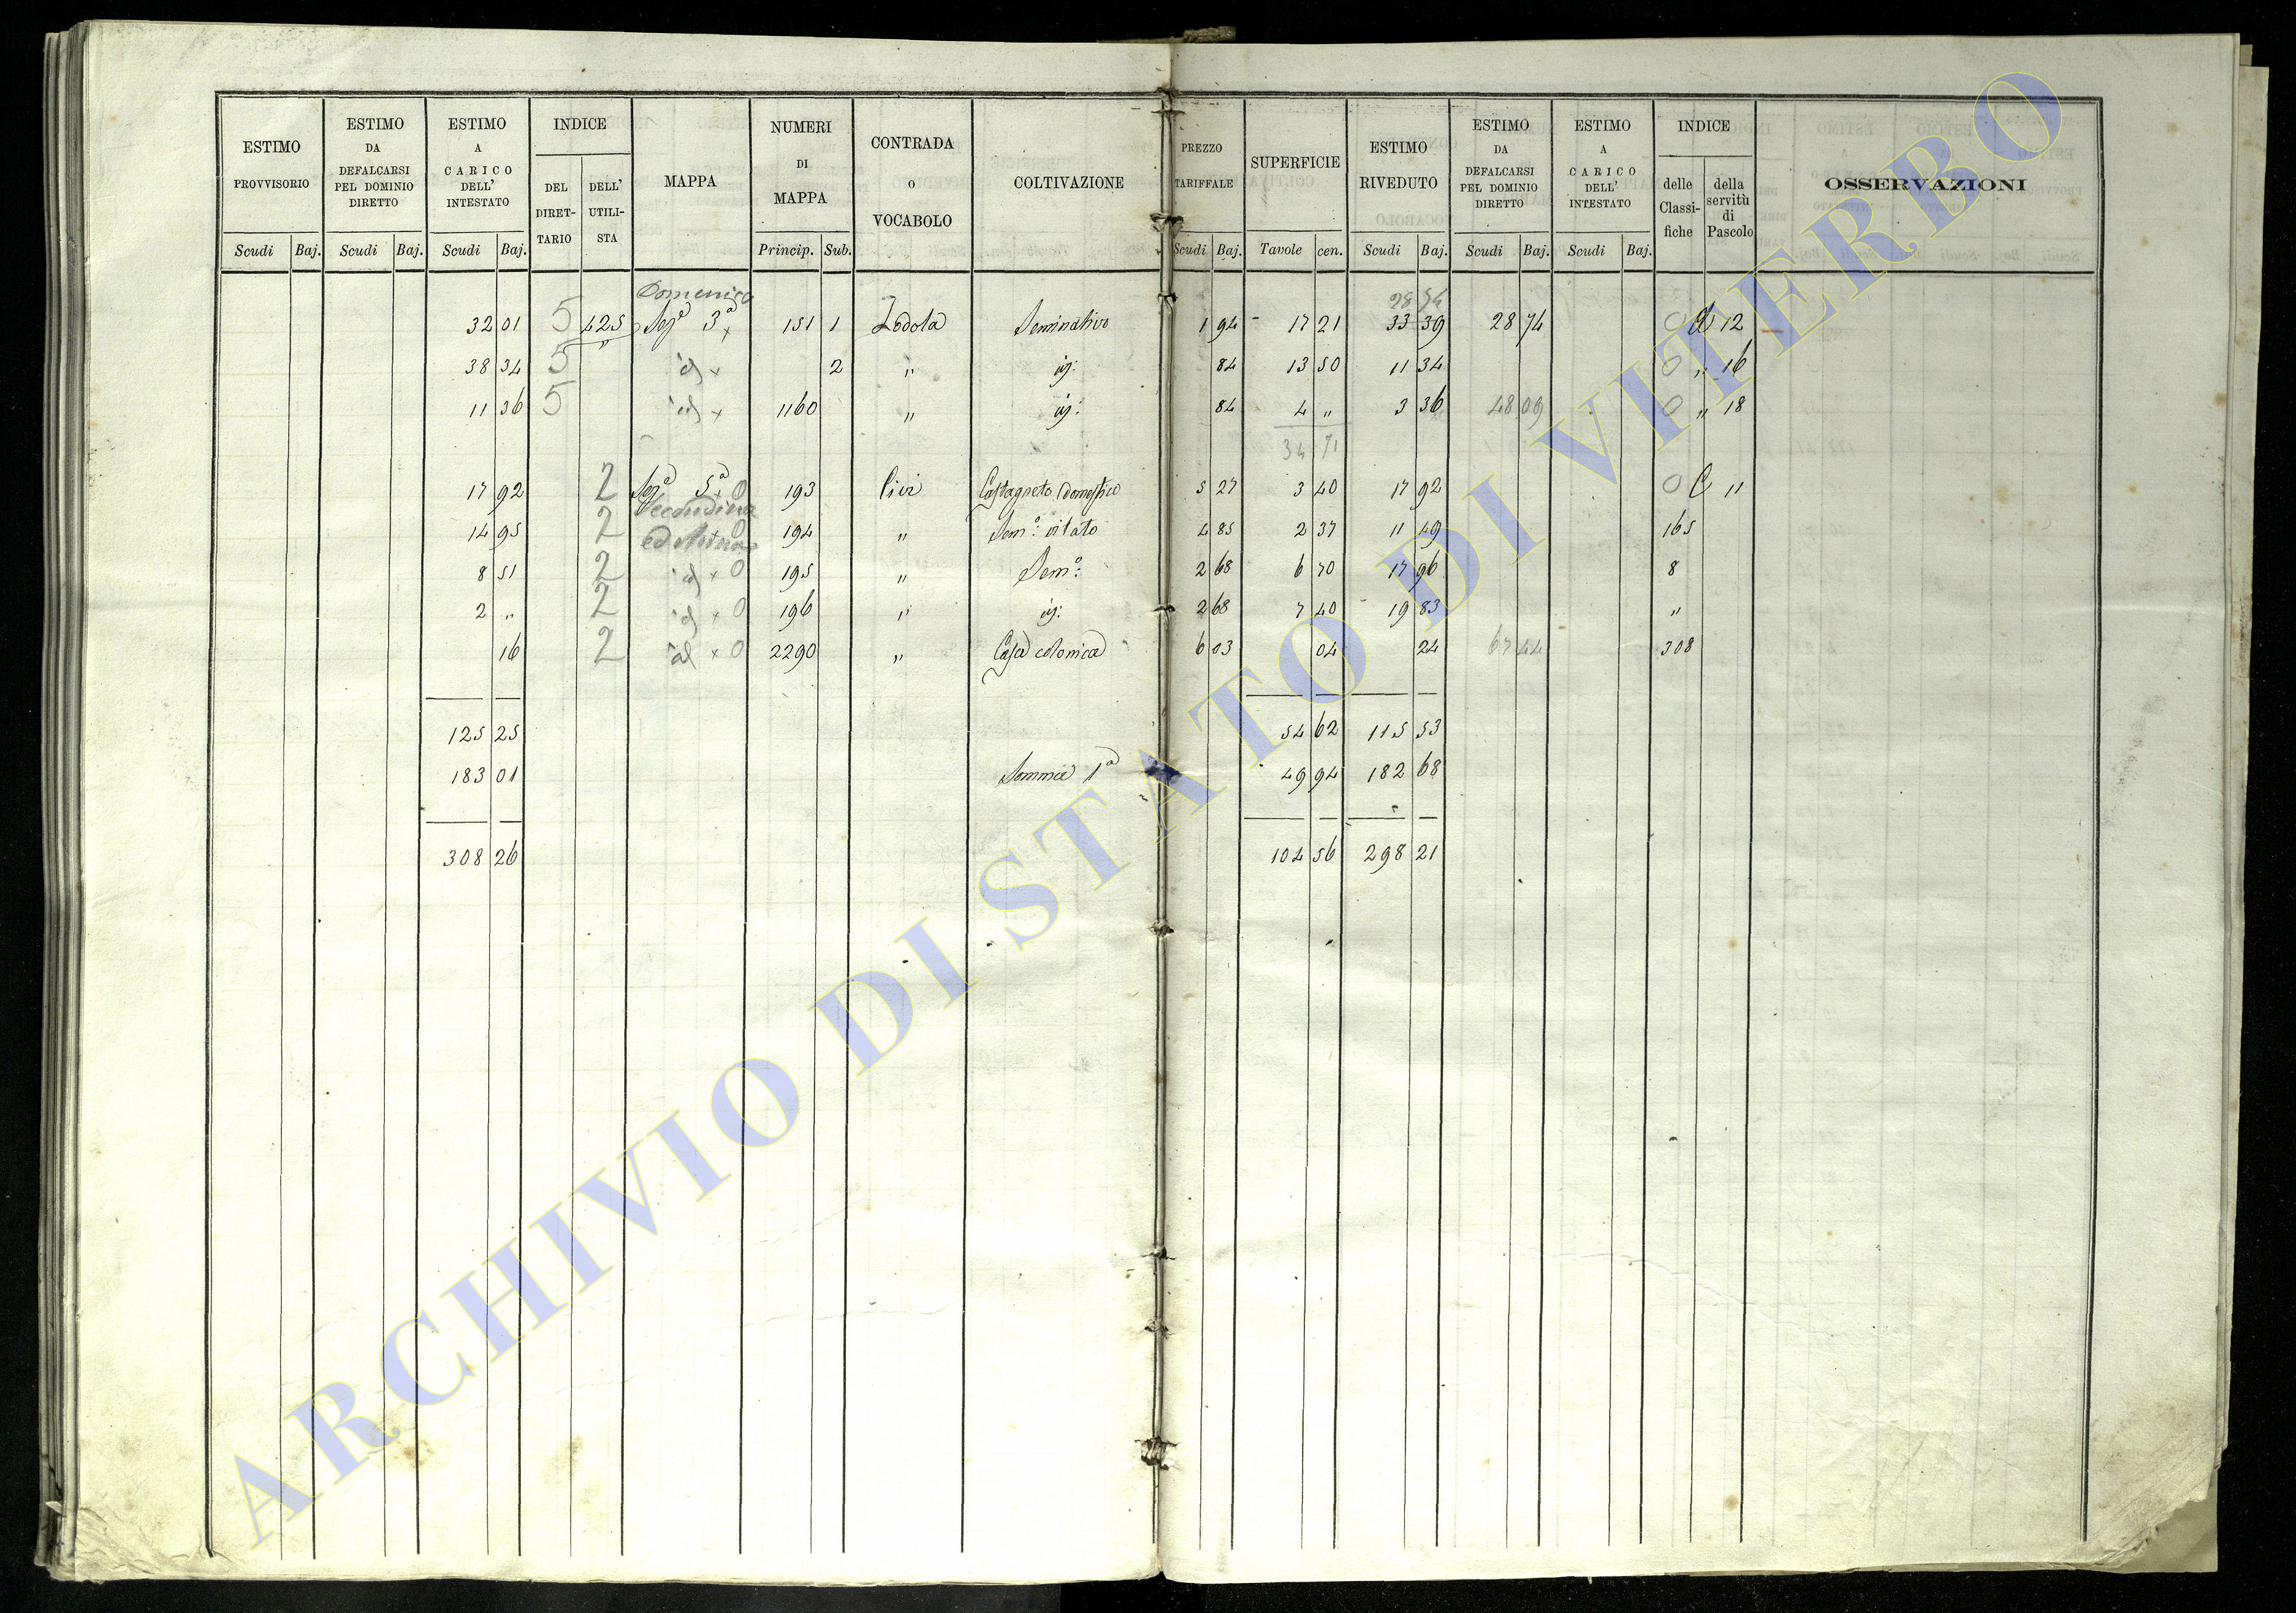 ESTIMO PROVVISORIO | ESTIMO DA DEFALCARSI PEL DOMINIO DIRETTO | ESTIMO A CARICO DELL' INTESTATO | INDICE DEL DIRET-TARIO | DELL' UTILI-STA | MAPPA | NUMERI DI MAPPA | CONTRADA o VOCABOLO | COLTIVAZIONE | PREZZO TARIFFALE | SUPERFICIE | ESTIMO RIVEDUTO | ESTIMO DA DEFALCARSI PEL DOMINIO DIRETTO | ESTIMO A CARICO DELL' INTESTATO | INDICE delle Classi-fiche | della servitù di Pascolo | OSSERVAZIONI
Scudi Baj. | Scudi Baj. | Scudi Baj. | Princip. Sub. | Scudi Baj. | Tavole cen. | Scudi Baj. | Scudi Baj. | Scudi Baj.
Domenico 28 54
32 01 5 425 Sez.e 3a x 151 1 Lodola Seminativo 1 94 17 21 33 39 28 74 0 D 12
38 34 5 " id x 2 " id: 84 13 50 11 34 0 " 16
11 36 5 id x 1160 " id: 84 4 " 3 36 48 09 0 " 18
34 71
17 92 2 Sez.e 5a x 0 193 Castagneto domestico 5 27 3 40 17 92 0 C 11
Secondina
14 95 2 ed 0 194 " Sem.o vitato 4 85 2 37 11 49 165
8 51 2 id x 0 195 " Sem.o 2 68 6 70 17 96 8
2 " 2 id x 0 196 " id: 2 68 7 40 19 83 "
16 2 id x 0 2290 " Casa colonica 6 03 04 24 67 44 308
125 25 54 62 115 53
183 01 Somma 1a 49 94 182 68
308 26 104 56 298 21
ARCHIVIO DI STATO DI VITERBO